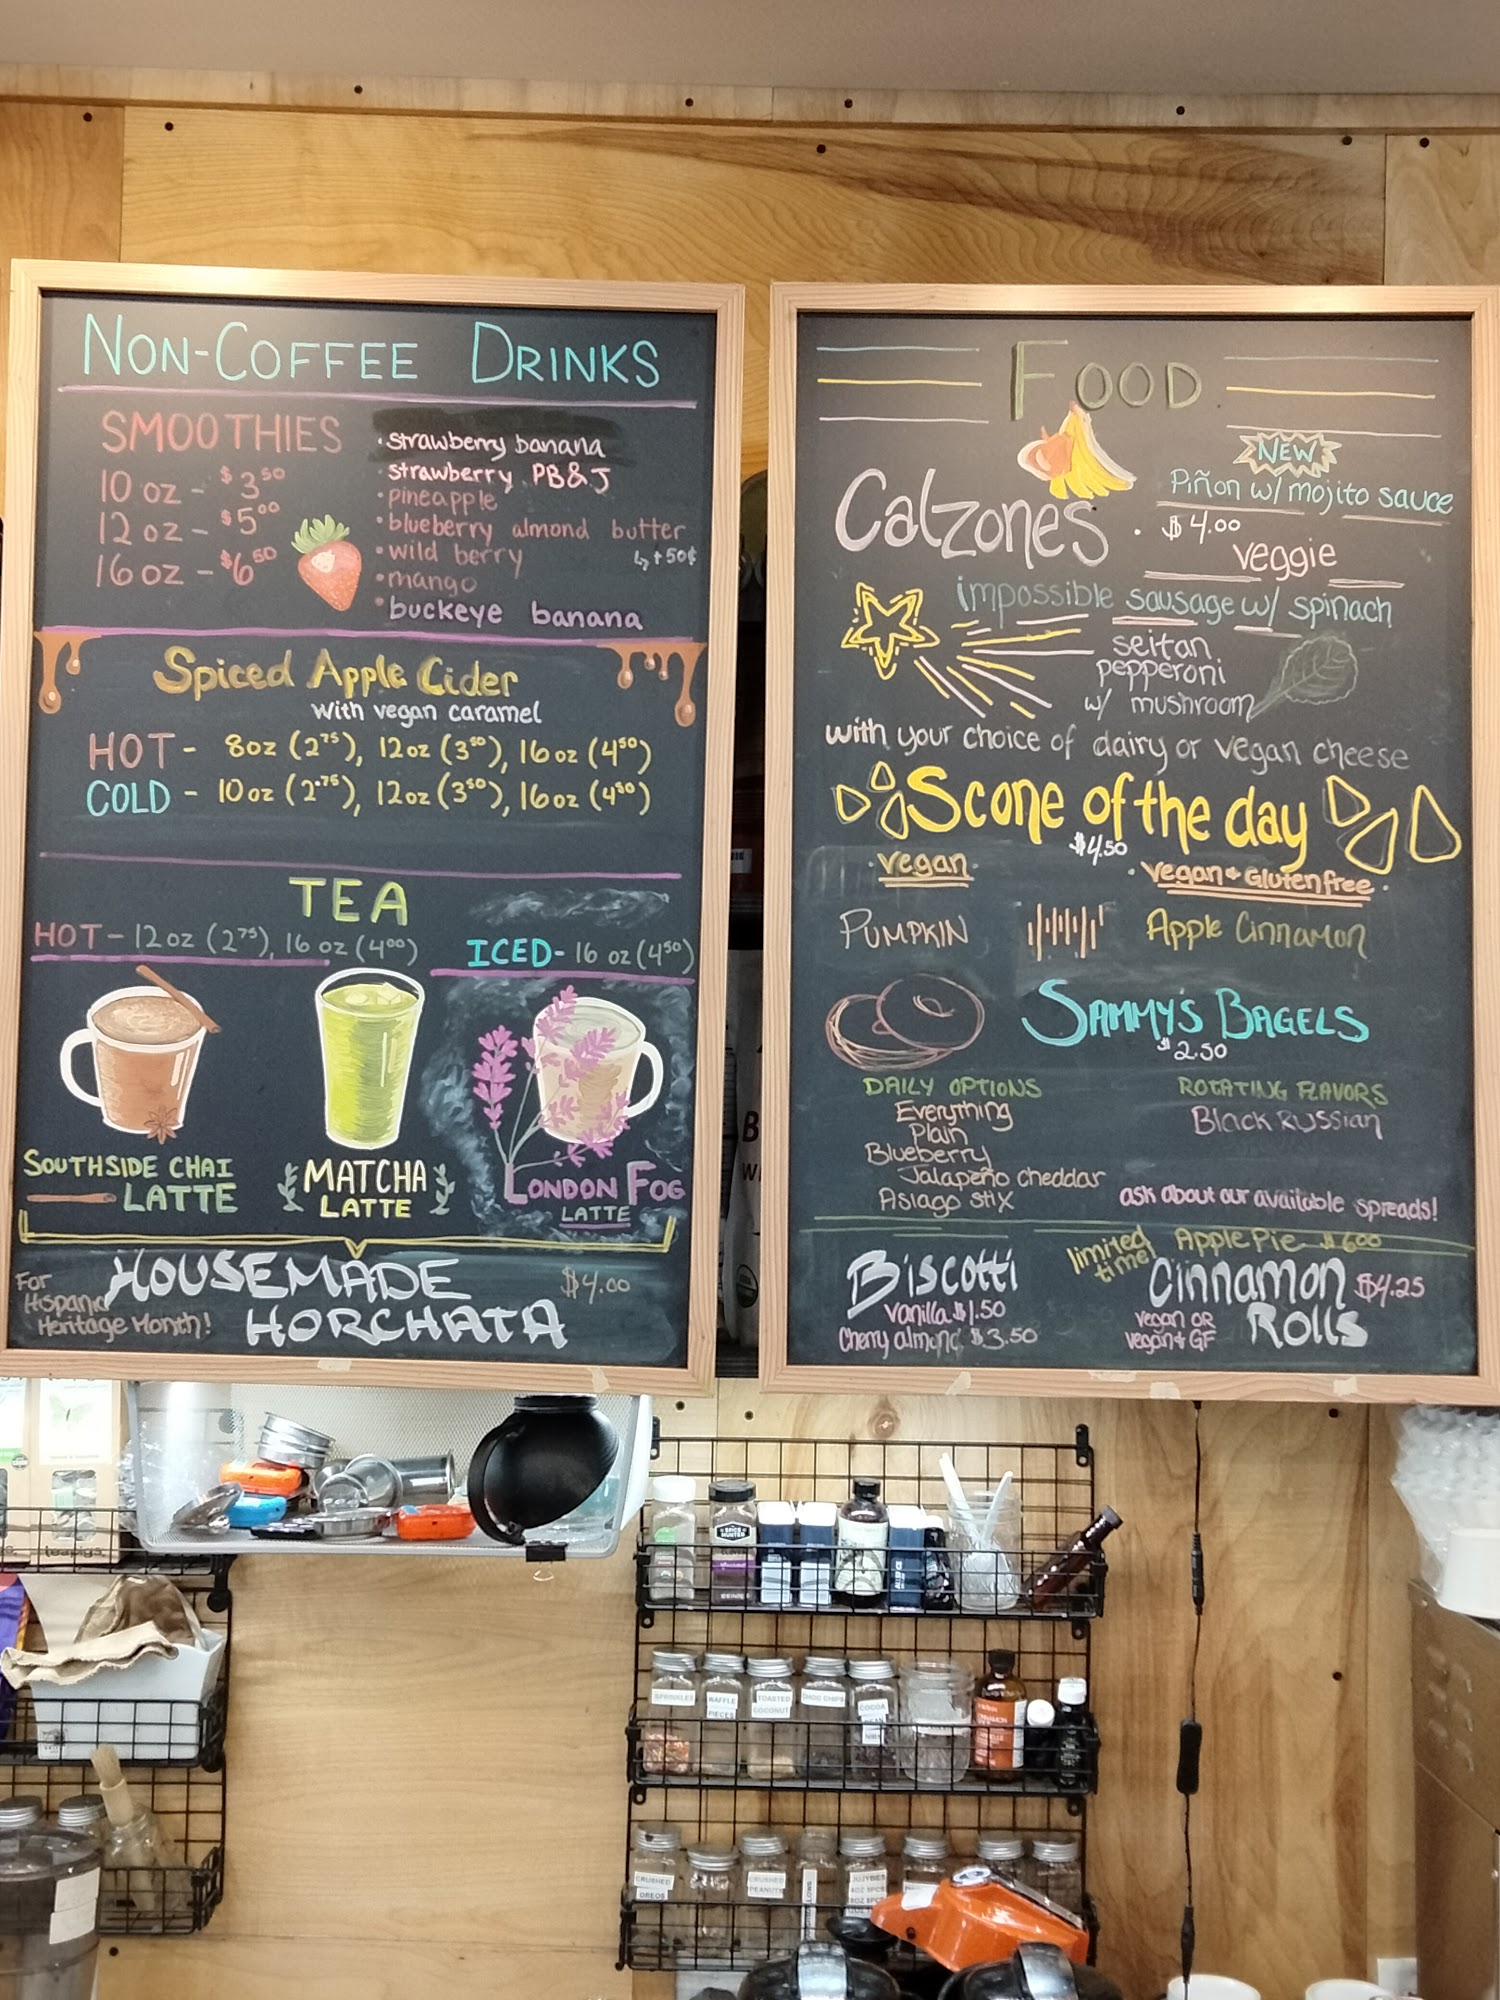 NON-COFFEE DRINKS
SMOOTHIES
10 oz - $3.50
12 oz - $5.00
16 oz - $6.50
• strawberry banana
• strawberry PB&J
• pineapple
• blueberry almond butter
↳ + 50¢
• wild berry
• mango
• buckeye banana
Spiced Apple Cider
with vegan caramel
HOT - 8oz (2.75), 12oz (3.50), 16oz (4.50)
COLD - 10oz (2.75), 12oz (3.50), 16oz (4.50)
TEA
HOT - 12oz (2.75), 16oz (4.00)
ICED - 16 oz (4.50)
SOUTHSIDE CHAI
LATTE
MATCHA
LATTE
LONDON FOG
LATTE
For
Hispanic
Heritage Month!
HOUSEMADE
HORCHATA
$4.00
FOOD
NEW
Piñon w/ mojito sauce
Calzones • $4.00
veggie
impossible sausage w/ spinach
seitan
pepperoni
w/ mushroom
with your choice of dairy or vegan cheese
Scone of the day
$4.50
• vegan •
• vegan + Gluten free •
PUMPKIN
Apple Cinnamon
SAMMYS BAGELS
$2.50
DAILY OPTIONS
Everything
Plain
Blueberry
Jalapeño cheddar
Asiago stix
ROTATING FLAVORS
Black Russian
ask about our available spreads!
Biscotti
vanilla $1.50
Cherry almond $3.50
limited
time!
Apple Pie $6.00
Cinnamon
Rolls
$4.25
vegan OR
vegan + GF
teapigs.
SPICE
HUNTER
SPRINKLES
WAFFLE
PIECES
TOASTED
COCONUT
CHOC CHIPS
COCOA
CRUSHED
OREOS
CRUSHED
PEANUTS